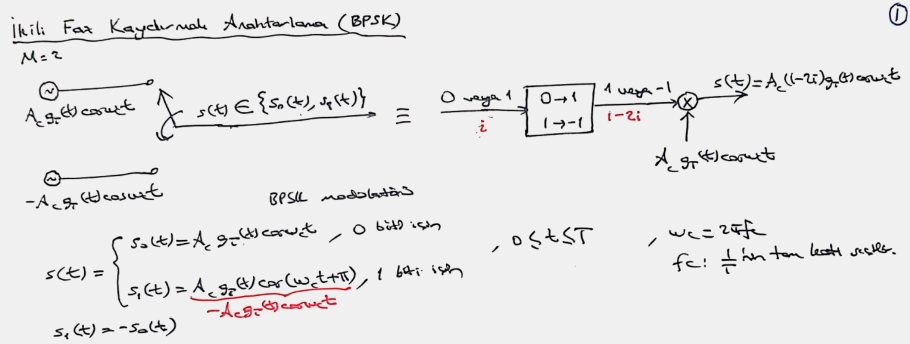 ①
İkili Faz Kaydırmalı Anahtarlama (BPSK)
M=2
A_c g_T(t) cosω_c t
s(t) ∈ {s_0(t), s_1(t)}
≡
0 veya 1
i
0→1
1→-1
1 veya -1
1-2i
s(t)=A_c(1-2i)g_T(t)cosω_c t
A_c g_T(t) cosω_c t
-A_c g_T(t) cosω_c t
BPSK modülatörü
s(t) = { s_0(t) = A_c g_T(t) cosω_c t , 0 biti için
s_1(t) = A_c g_T(t) cos(ω_c t+π) , 1 biti için
-A_c g_T(t) cosω_c t
, 0 ≤ t ≤ T
, ω_c = 2πf_c
f_c : 1/T 'nin tam katı
s_1(t) = -s_0(t)